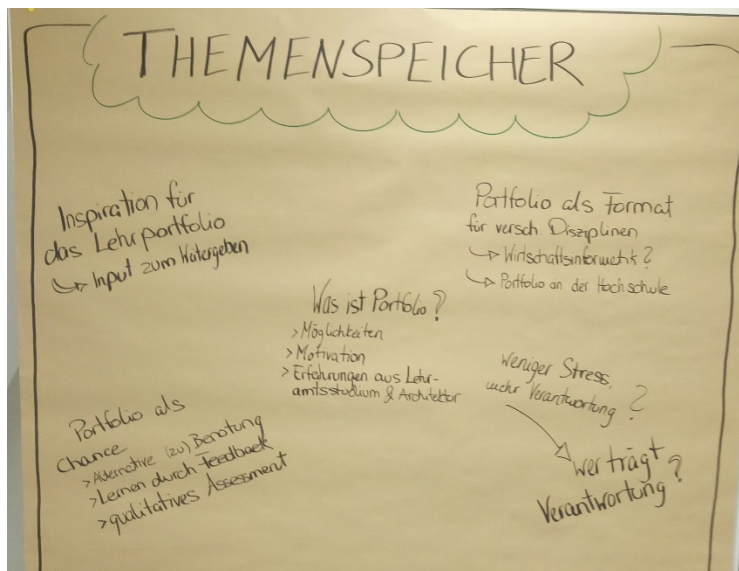 THEMENSPEICHER
Inspiration für
das Lehrportfolio
↳ Input zum Weitergeben
Portfolio als Format
für versch. Disziplinen
↳ Wirtschaftsinformatik?
↳ Portfolio an der Hochschule
Was ist Portfolio?
> Möglichkeiten
> Motivation
> Erfahrungen aus Lehr-
amtsstudium & Architektur
weniger Stress,
mehr Verantwortung?
wer trägt
Verantwortung?
Portfolio als
Chance
> Alternative (zu) Benotung
> Lernen durch Feedback
> qualitatives Assessment